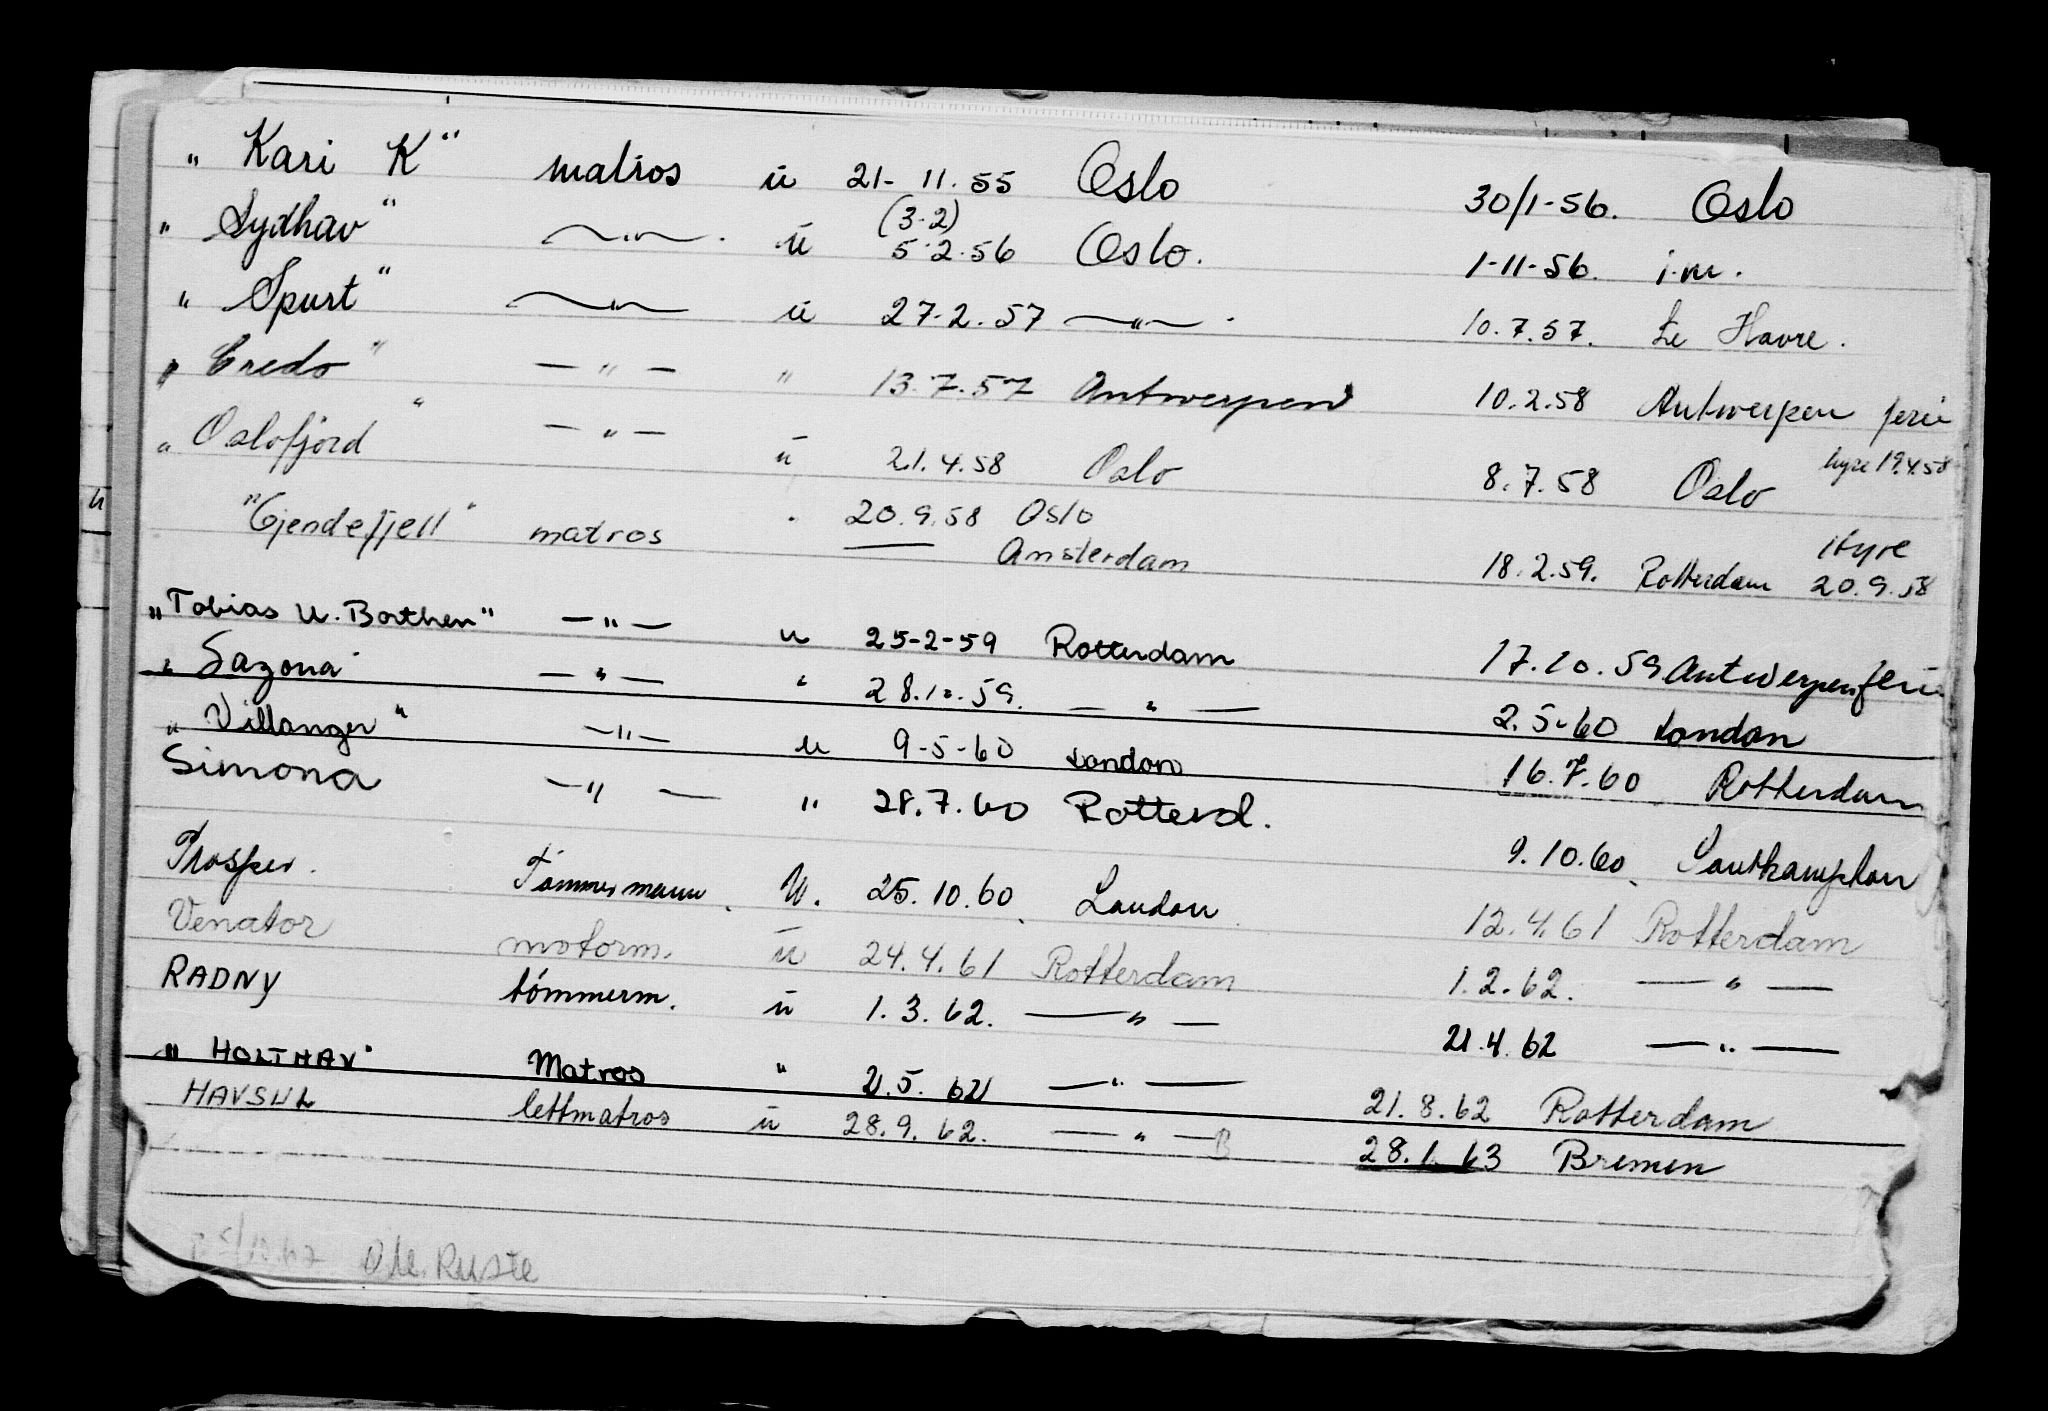 " Kari K" matros u 21-11.55 Oslo 30/1-56. Oslo
(3-2)
" Sydhav" —"— . u 5.2.56 Oslo. 1-11-56. i.m.
" Spurt" —"— u 27.2.57 —"— . 10.7.57. Le Havre.
" Credo" —"— " 13.7.57 Antwerpen 10.2.58 Antwerpen ferie
" Oslofjord" —"— u 21.4.58 Oslo 8.7.58 Oslo hyre 19.4.58
"Gjendefjell" matros . 20.9.58 Oslo Hyre
— Amsterdam 18.2.59. Rotterdam 20.9.58
"Tobias U. Borthen" —"— u 25-2-59 Rotterdam 17.10.59 Antwerpen ferie
" Sazona" —"— " 28.10.59. —"— 2.5-60 London
" Villanger" —"— u 9-5-60 London 16.7.60 Rotterdam
Simona —"— " 28.7.60 Rotterd. 9.10.60. Southampton
Prosper. Tømmermann. U. 25.10.60. London. 12.4.61 Rotterdam
Venator motorm. u 24.4.61 Rotterdam 1.2.62. —"—
RADNY tømmerm. u 1.3.62. —"— 21.4.62 —"—
" HOLTHAV" Matros " 21.5.62 —"— 21.8.62 Rotterdam
HAVSUL lettmatros u 28.9.62. —"— B 28.1.63 Bremen
Ruste